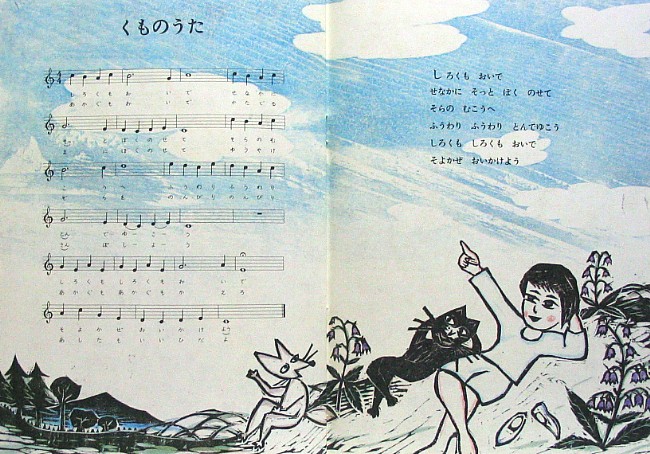 くものうた
しろくもおいで せなか
あかくもおいで かたぐる
ぼくのせて そらのむ
ぼくのせて
うへ ふうわり ふうわり
のんびり のんびり
とんでゆこう
さんぽしよう
しろくもしろくもおいで
あかくもあかくも
そよかぜおいかけよう
あしたもいいひだよ
しろくも おいで
せなかに そっと ぼく のせて
そらの むこうへ
ふうわり ふうわり とんでゆこう
しろくも しろくも おいで
そよかぜ おいかけよう